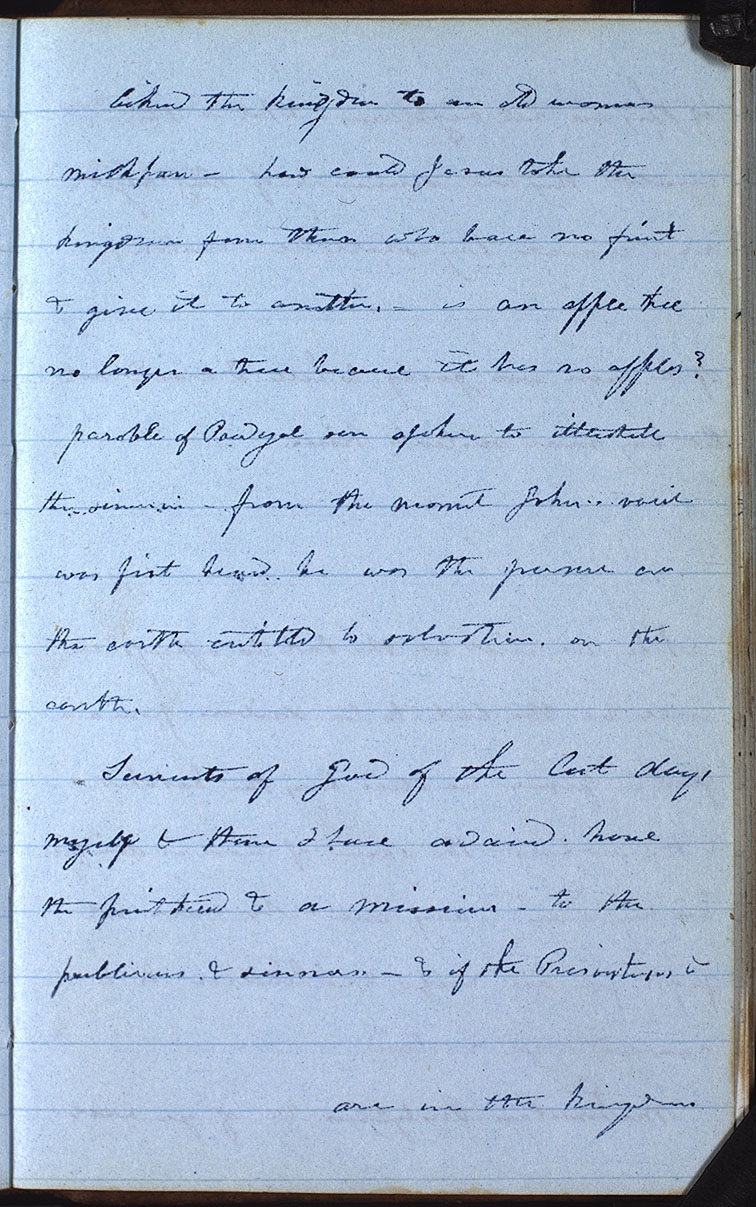 liked the kingdom to an old womas
milkpan – how could Jesus take the
kingdom from them who bare no fruit
& give it to another. – is an apple tree
no longer a tree because it has no apples?
parable of Prodigal son spoken to illustrate
the – from the moment John's voice
was first heard he was the person on
the earth entitled to salvation. on the
earth.
Servants of God of the last days
myself & those I have ordaind. have
the priesthood & a mission – to the
publicans & sinners – & if the Presbyterians &
are in the kingdom